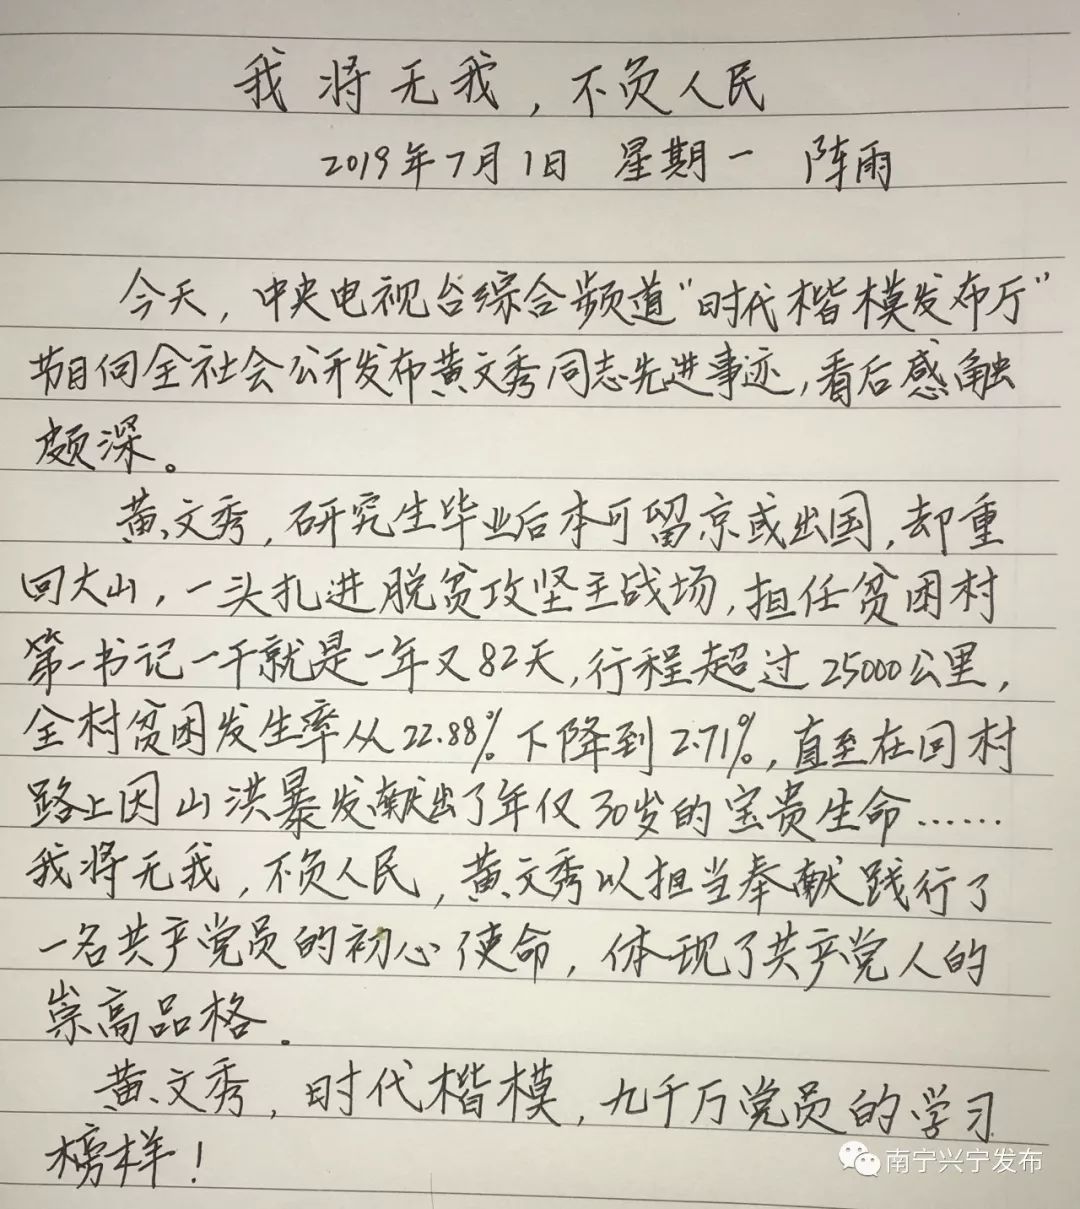 我将无我，不负人民
2019年7月1日 星期一 阵雨
今天，中央电视台综合频道"时代楷模发布厅"
节目向全社会公开发布黄文秀同志先进事迹，看后感触
颇深。
黄文秀，研究生毕业后本可留京或出国，却重
回大山，一头扎进脱贫攻坚主战场，担任贫困村
第一书记一干就是一年又82天，行程超过25000公里，
全村贫困发生率从22.88%下降到2.71%，直至在回村
路上因山洪暴发献出了年仅30岁的宝贵生命……
我将无我，不负人民，黄文秀以担当奉献践行了
一名共产党员的初心使命，体现了共产党人的
崇高品格。
黄文秀，时代楷模，九千万党员的学习
榜样！
南宁兴宁发布